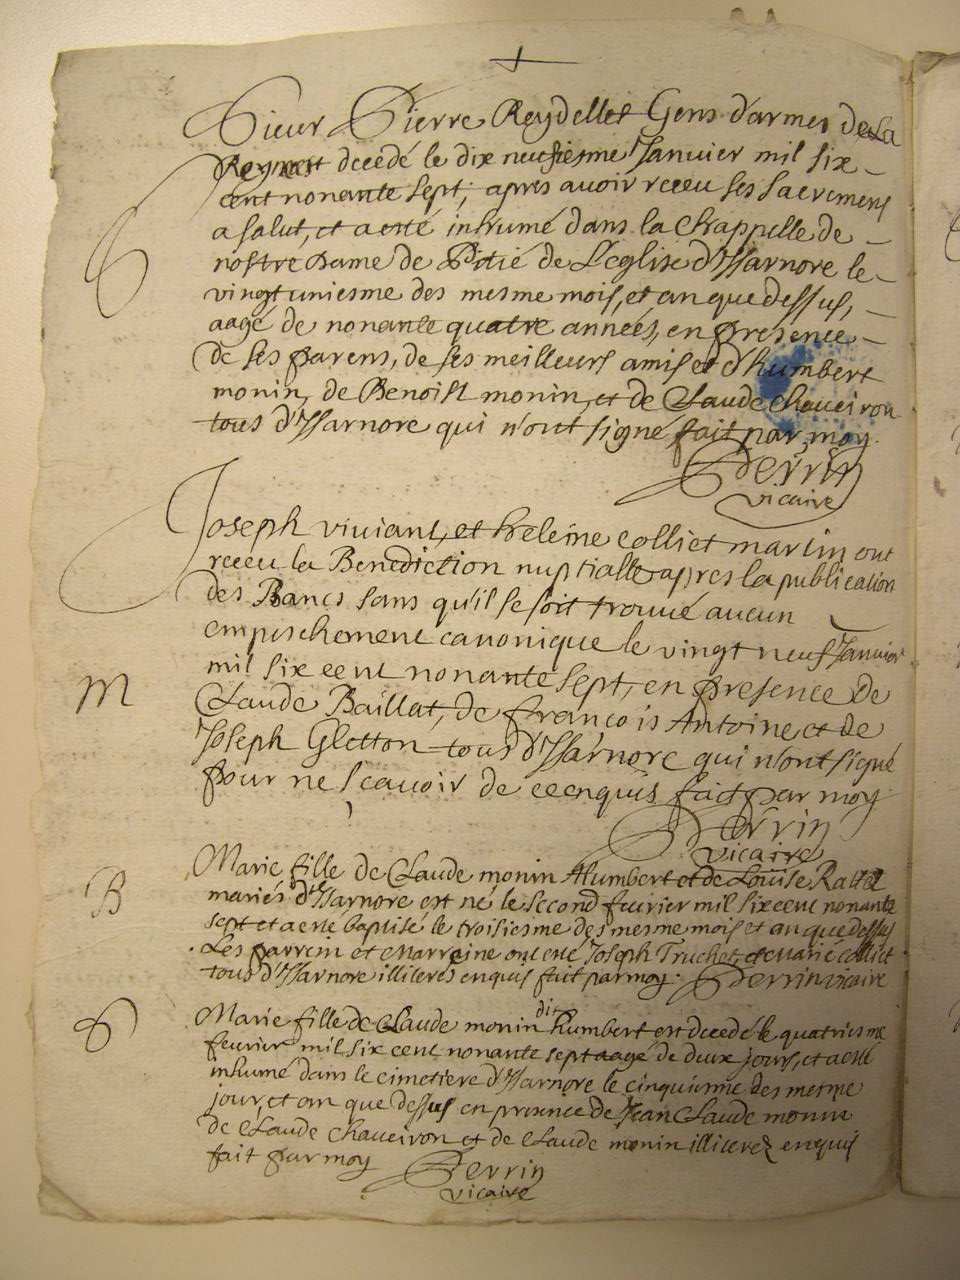 Sieur Pierre Reydellet Gens d'armes de La
Reyne est decedé le dix neufiesme Janvier mil six
cent nonante sept, apres avoir receu ses sacremens
a salut, et a esté inhumé dans la Chappelle de
nostre Dame de Pitié de L'eglise d'Isarnore le
vingtuniesme des mesme mois, et an que dessus,
aagé de nonante quatre années, en presence
de ses parens, de ses meilleurs amis et d'humbert
monin, de Benoist monin, et de Claude chaveiron
tous d'Isarnore qui n'ont signé fait par moy.
Perrin
vicaire
Joseph viviant, et heleine colliet martin ont
receu la Benediction nuptialle apres la publication
des Bancs sans qu'il se soit trouvé aucun
empeschement canonique le vingt neuf Janvier
M
mil six cent nonante sept, en presence de
Claude Baillat, de françois Antoine, et de
Joseph Gletton tous d'Isarnore qui n'ont signé
pour ne scavoir de ce enquis fait par moy
Perrin
vicaire
Marie fille de Claude monin humbert et de Louise Rattel
B
mariés d'Isarnore est né le second fevrier mil six cent nonante
sept et a esté baptisé le troisiesme des mesme mois et an que dessus
Les parrein et Marreine ont esté Joseph Truchet, et marie colliet
tous d'Isarnore illiterés enquis fait par moy. Perrin vicaire
Marie fille de Claude monin dit humbert est decedé le quatriesme
fevrier mil six cent nonante sept aagé de deux jours, et a esté
inhumé dans le cimetiere d'Isarnore le cinquiesme des mesme
jour, et an que dessus en presence de Jean Claude monin
de Claude chaveiron et de Claude monin illiterez enquis
fait par moy Perrin
vicaire